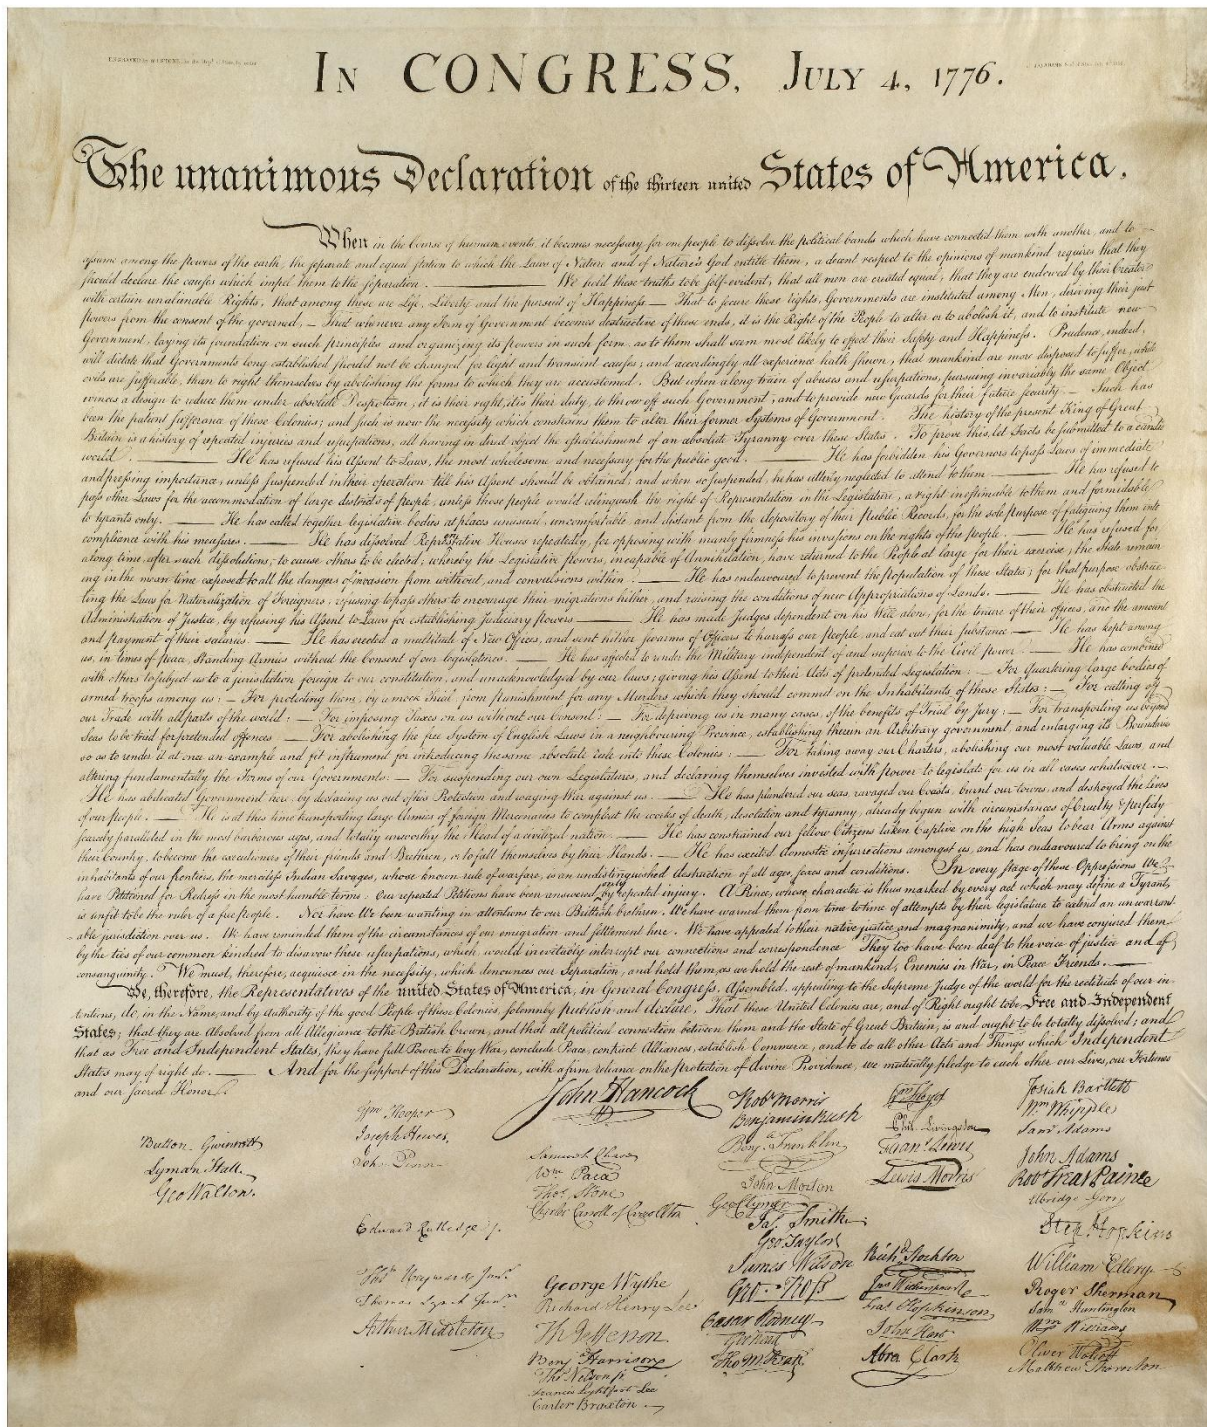 IN CONGRESS, JULY 4, 1776.
The unanimous Declaration of the thirteen united States of America,
When in the Course of human events, it becomes necessary for one people to dissolve the political bands which have connected them with another, and to
assume among the powers of the earth, the separate and equal station to which the Laws of Nature and of Nature's God entitle them, a decent respect to the opinions of mankind requires that they
should declare the causes which impel them to the separation. — We hold these truths to be self-evident, that all men are created equal, that they are endowed by their Creator
with certain unalienable Rights, that among these are Life, Liberty and the pursuit of Happiness.— That to secure these rights, Governments are instituted among Men, deriving their just
powers from the consent of the governed,— That whenever any Form of Government becomes destructive of these ends, it is the Right of the People to alter or to abolish it, and to institute new
Government, laying its foundation on such principles and organizing its powers in such form, as to them shall seem most likely to effect their Safety and Happiness. Prudence, indeed,
will dictate that Governments long established should not be changed for light and transient causes; and accordingly all experience hath shewn, that mankind are more disposed to suffer, while
evils are sufferable, than to right themselves by abolishing the forms to which they are accustomed. But when a long train of abuses and usurpations, pursuing invariably the same Object
evinces a design to reduce them under absolute Despotism, it is their right, it is their duty, to throw off such Government, and to provide new Guards for their future security.— Such has
been the patient sufferance of these Colonies; and such is now the necessity which constrains them to alter their former Systems of Government. The history of the present King of Great
Britain is a history of repeated injuries and usurpations, all having in direct object the establishment of an absolute Tyranny over these States. To prove this, let Facts be submitted to a candid
world. — He has refused his Assent to Laws, the most wholesome and necessary for the public good. — He has forbidden his Governors to pass Laws of immediate
and pressing importance, unless suspended in their operation till his Assent should be obtained; and when so suspended, he has utterly neglected to attend to them. — He has refused to
pass other Laws for the accommodation of large districts of people, unless those people would relinquish the right of Representation in the Legislature, a right inestimable to them and formidable
to tyrants only. — He has called together legislative bodies at places unusual, uncomfortable, and distant from the depository of their Public Records, for the sole purpose of fatiguing them into
compliance with his measures. — He has dissolved Representative Houses repeatedly, for opposing with manly firmness his invasions on the rights of the people. — He has refused for
a long time, after such dissolutions, to cause others to be elected; whereby the Legislative powers, incapable of Annihilation, have returned to the People at large for their exercise; the State remain
ing in the mean time exposed to all the dangers of invasion from without, and convulsions within. — He has endeavoured to prevent the population of these States; for that purpose obstruc
ting the Laws for Naturalization of Foreigners; refusing to pass others to encourage their migrations hither, and raising the conditions of new Appropriations of Lands. — He has obstructed the
Administration of Justice, by refusing his Assent to Laws for establishing Judiciary powers. — He has made Judges dependent on his Will alone, for the tenure of their offices, and the amount
and payment of their salaries. — He has erected a multitude of New Offices, and sent hither swarms of Officers to harrass our people, and eat out their substance. — He has kept among
us, in times of peace, Standing Armies without the Consent of our legislatures. — He has affected to render the Military independent of and superior to the Civil power. — He has combined
with others to subject us to a jurisdiction foreign to our constitution, and unacknowledged by our laws; giving his Assent to their Acts of pretended Legislation: — For Quartering large bodies of
armed troops among us: — For protecting them, by a mock Trial, from punishment for any Murders which they should commit on the Inhabitants of these States: — For cutting off
our Trade with all parts of the world: — For imposing Taxes on us without our Consent: — For depriving us in many cases, of the benefits of Trial by Jury: — For transporting us beyond
Seas to be tried for pretended offences — For abolishing the free System of English Laws in a neighbouring Province, establishing therein an Arbitrary government, and enlarging its Boundaries
so as to render it at once an example and fit instrument for introducing the same absolute rule into these Colonies: — For taking away our Charters, abolishing our most valuable Laws, and
altering fundamentally the Forms of our Governments: — For suspending our own Legislatures, and declaring themselves invested with power to legislate for us in all cases whatsoever. —
He has abdicated Government here, by declaring us out of his Protection and waging War against us. — He has plundered our seas, ravaged our Coasts, burnt our towns, and destroyed the lives
of our people. — He is at this time transporting large Armies of foreign Mercenaries to compleat the works of death, desolation and tyranny, already begun with circumstances of Cruelty & perfidy
scarcely paralleled in the most barbarous ages, and totally unworthy the Head of a civilized nation. — He has constrained our fellow Citizens taken Captive on the high Seas to bear Arms against
their Country, to become the executioners of their friends and Brethren, or to fall themselves by their Hands. — He has excited domestic insurrections amongst us, and has endeavoured to bring on the
inhabitants of our frontiers, the merciless Indian Savages, whose known rule of warfare, is an undistinguished destruction of all ages, sexes and conditions. In every stage of these Oppressions We
have Petitioned for Redress in the most humble terms: Our repeated Petitions have been answered only by repeated injury. A Prince, whose character is thus marked by every act which may define a Tyrant,
is unfit to be the ruler of a free people. Nor have We been wanting in attentions to our Brittish brethren. We have warned them from time to time of attempts by their legislature to extend an unwarrant
able jurisdiction over us. We have reminded them of the circumstances of our emigration and settlement here. We have appealed to their native justice and magnanimity, and we have conjured them
by the ties of our common kindred to disavow these usurpations, which, would inevitably interrupt our connections and correspondence They too have been deaf to the voice of justice and of
consanguinity. We must, therefore, acquiesce in the necessity, which denounces our Separation, and hold them, as we hold the rest of mankind, Enemies in War, in Peace Friends. —
We, therefore, the Representatives of the united States of America, in General Congress, Assembled, appealing to the Supreme Judge of the world for the rectitude of our in
tentions, do, in the Name, and by Authority of the good People of these Colonies, solemnly publish and declare, That these United Colonies are, and of Right ought to be Free and Independent
States; that they are Absolved from all Allegiance to the British Crown, and that all political connection between them and the State of Great Britain, is and ought to be totally dissolved; and
that as Free and Independent States, they have full Power to levy War, conclude Peace, contract Alliances, establish Commerce, and to do all other Acts and Things which Independent
States may of right do. — And for the support of this Declaration, with a firm reliance on the protection of divine Providence, we mutually pledge to each other our Lives, our Fortunes
and our sacred Honor.
Button Gwinnett
Lyman Hall
Geo Walton.
Wm Hooper
Joseph Hewes,
John Penn
Edward Rutledge
Thos Heyward Junr
Thomas Lynch Junr
Arthur Middleton
John Hancock
Samuel Chase
Wm Paca
Thos Stone
Charles Carroll of Carrollton
George Wythe
Richard Henry Lee
Th Jefferson
Benj Harrison
Thos Nelson jr
Francis Lightfoot Lee
Carter Braxton
Robt Morris
Benjamin Rush
Benja Franklin
John Morton
Geo Clymer
Jas Smith
Geo Taylor
James Wilson
Geo. Ross
Caesar Rodney
Geo Read
Tho M:Kean
Wm Floyd
Phil. Livingston
Frans Lewis
Lewis Morris
Richd Stockton
Jno Witherspoon
Fras Hopkinson
John Hart
Abra Clark
Josiah Bartlett
Wm Whipple
Saml Adams
John Adams
Robt Treat Paine
Elbridge Gerry
Step. Hopkins
William Ellery
Roger Sherman
Saml Huntington
Wm Williams
Oliver Wolcott
Matthew Thornton